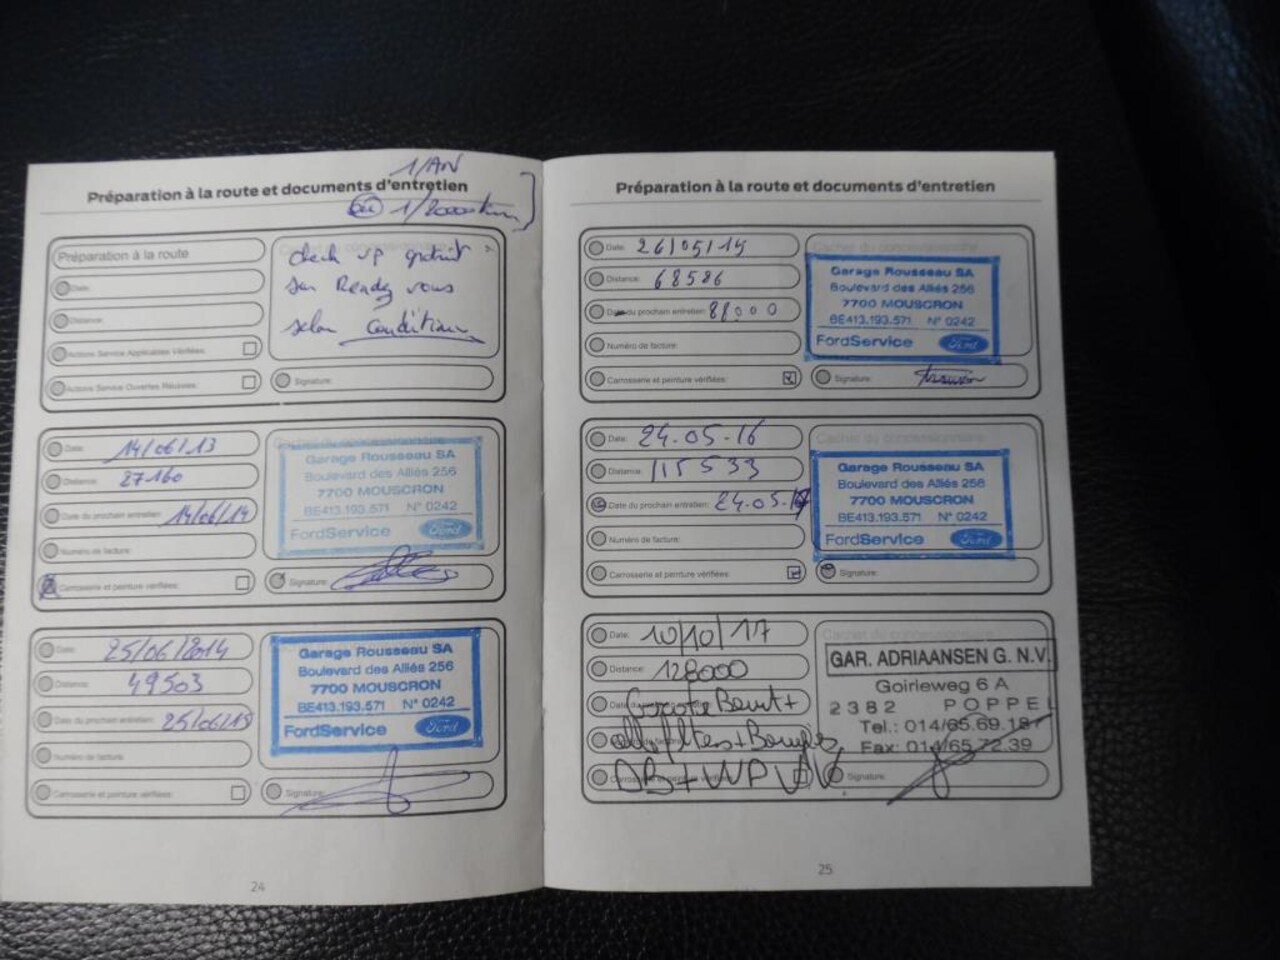 1/AN
Préparation à la route et documents d'entretien
ou 1/20000km
Préparation à la route
Date:
Distance:
Actions Service Applicables Vérifiées:
Actions Service Ouvertes Résolues:
check up gratuit
sur Rendez vous
selon conditions
Signature:
Date: 14/06/13
Distance: 27160
Date du prochain entretien: 14/06/14
Numéro de facture:
Carrosserie et peinture vérifiées:
Cachet du concessionnaire
Garage Rousseau SA
Boulevard des Alliés 256
7700 MOUSCRON
BE413.193.571 N° 0242
FordService Ford
Signature:
Date: 25/06/2014
Distance: 49503
Date du prochain entretien: 25/06/15
Numéro de facture:
Carrosserie et peinture vérifiées:
Garage Rousseau SA
Boulevard des Alliés 256
7700 MOUSCRON
BE413.193.571 N° 0242
FordService Ford
Signature:
24
Préparation à la route et documents d'entretien
Date: 26/05/15
Distance: 68586
Date du prochain entretien: 88000
Numéro de facture:
Carrosserie et peinture vérifiées:
Cachet du concessionnaire
Garage Rousseau SA
Boulevard des Alliés 256
7700 MOUSCRON
BE413.193.571 N° 0242
FordService Ford
Signature:
Date: 24.05.16
Distance: 115533
Date du prochain entretien: 24.05.17
Numéro de facture:
Carrosserie et peinture vérifiées:
Cachet du concessionnaire
Garage Rousseau SA
Boulevard des Alliés 256
7700 MOUSCRON
BE413.193.571 N° 0242
FordService Ford
Signature:
Date: 10/10/17
Distance: 128000
Grote Beurt +
alle filters + Bougies
Cachet du concessionnaire
GAR. ADRIAANSEN G. N.V.
Goirleweg 6 A
2382 POPPEL
Tel.: 014/65.69.18
Fax: 014/65.72.39
Signature:
25